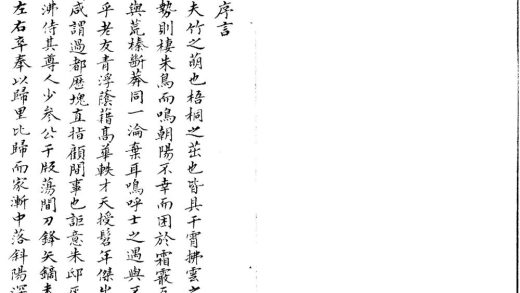 序言
夫竹之萌也梧桐之茁也皆具干霄拂雲之
勢則棲朱鳥而鳴朝陽不幸而困於霜霰
與荒榛斷莽同一淪棄耳嗚呼士之遇與
乎老友青浮蔭藉高華軼才天授髫年傑出
咸謂過都歷塊直指顧間事也詎意朱邸
沸侍其尊人少參公于版蕩間刀鋒矢鏑
左右卒奉以歸里比歸而家漸中落斜陽深